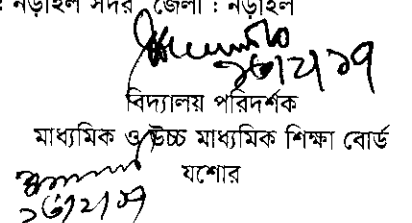 : নড়াইল সদর জেলা : নড়াইল
বিদ্যালয় পরিদর্শক
মাধ্যমিক ও উচ্চ মাধ্যমিক শিক্ষা বোর্ড
যশোর